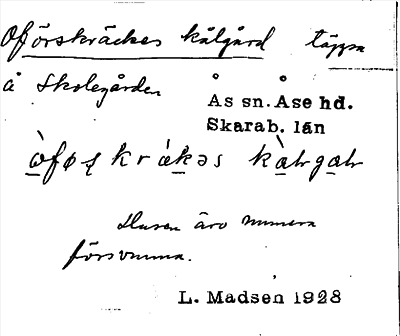 Oförskräckes kålgård täppa
å Skolegården
Ås sn. Åse hd.
Skarab. län
òføṣkrǽkəs kàlgaḷ
Husen äro numera
försvunna.
L. Madsen 1928